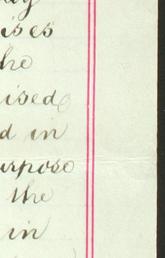 ises
he
ised
d in
urpose
the
in